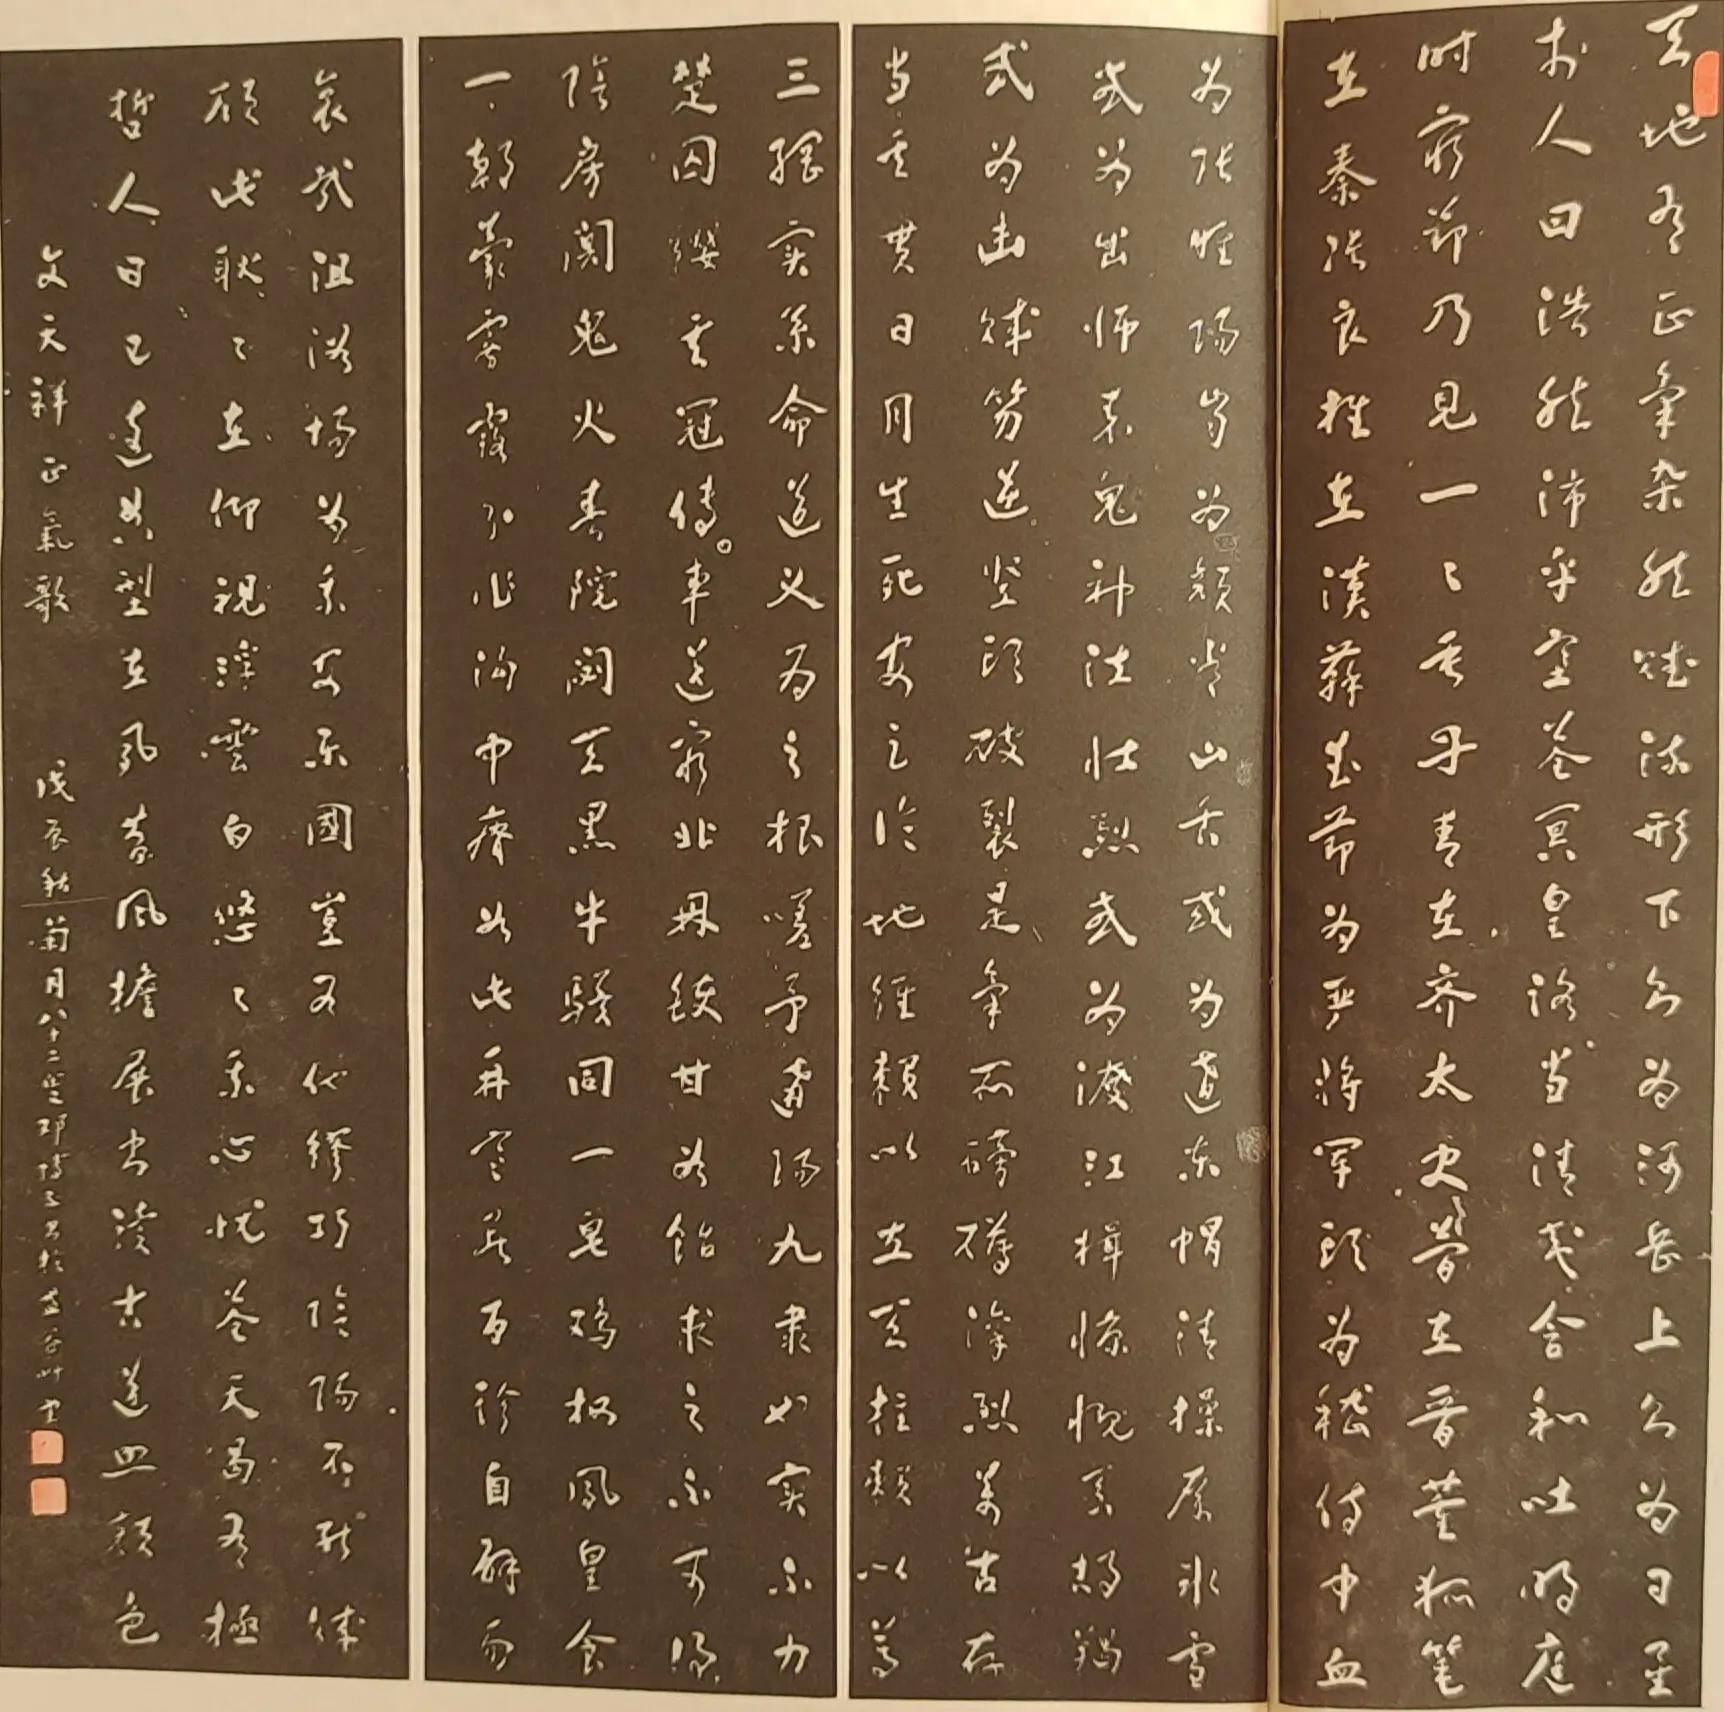 天地有正氣杂然赋流形下則為河岳上則為日星
於人曰浩然沛乎塞苍冥皇路当清夷含和吐明庭
时窮节乃見一々垂丹青在齐太史简在晋董狐笔
在秦张良椎在漢蘇武节為严将军头為嵇侍中血
為张睢陽齿為颜常山舌或為遼东帽清操厉冰雪
或為出师表鬼神泣壮烈或為渡江楫慷慨吞胡羯
或為击贼笏逆竖头破裂是氣所磅礴凛烈萬古存
当其贯日月生死安足论地维赖以立天柱赖以尊
三纲实系命道义為之根嗟予遘陽九隶也实不力
楚囚缨其冠传車送窮北鼎鑊甘如飴求之不可得
陰房闃鬼火春院闭天黑牛驥同一皂鸡栖鳳皇食
一朝蒙雾露分作沟中瘠如此再寒暑百沴自辟易
哀哉沮洳场為我安乐國岂有他繆巧陰陽不能贼
顾此耿々在仰視浮雲白悠々我心忧苍天曷有極
哲人日已遠典型在夙昔風檐展书读古道照颜色
文天祥正氣歌
戊辰秋菊月八十二叟邓 书於 草堂